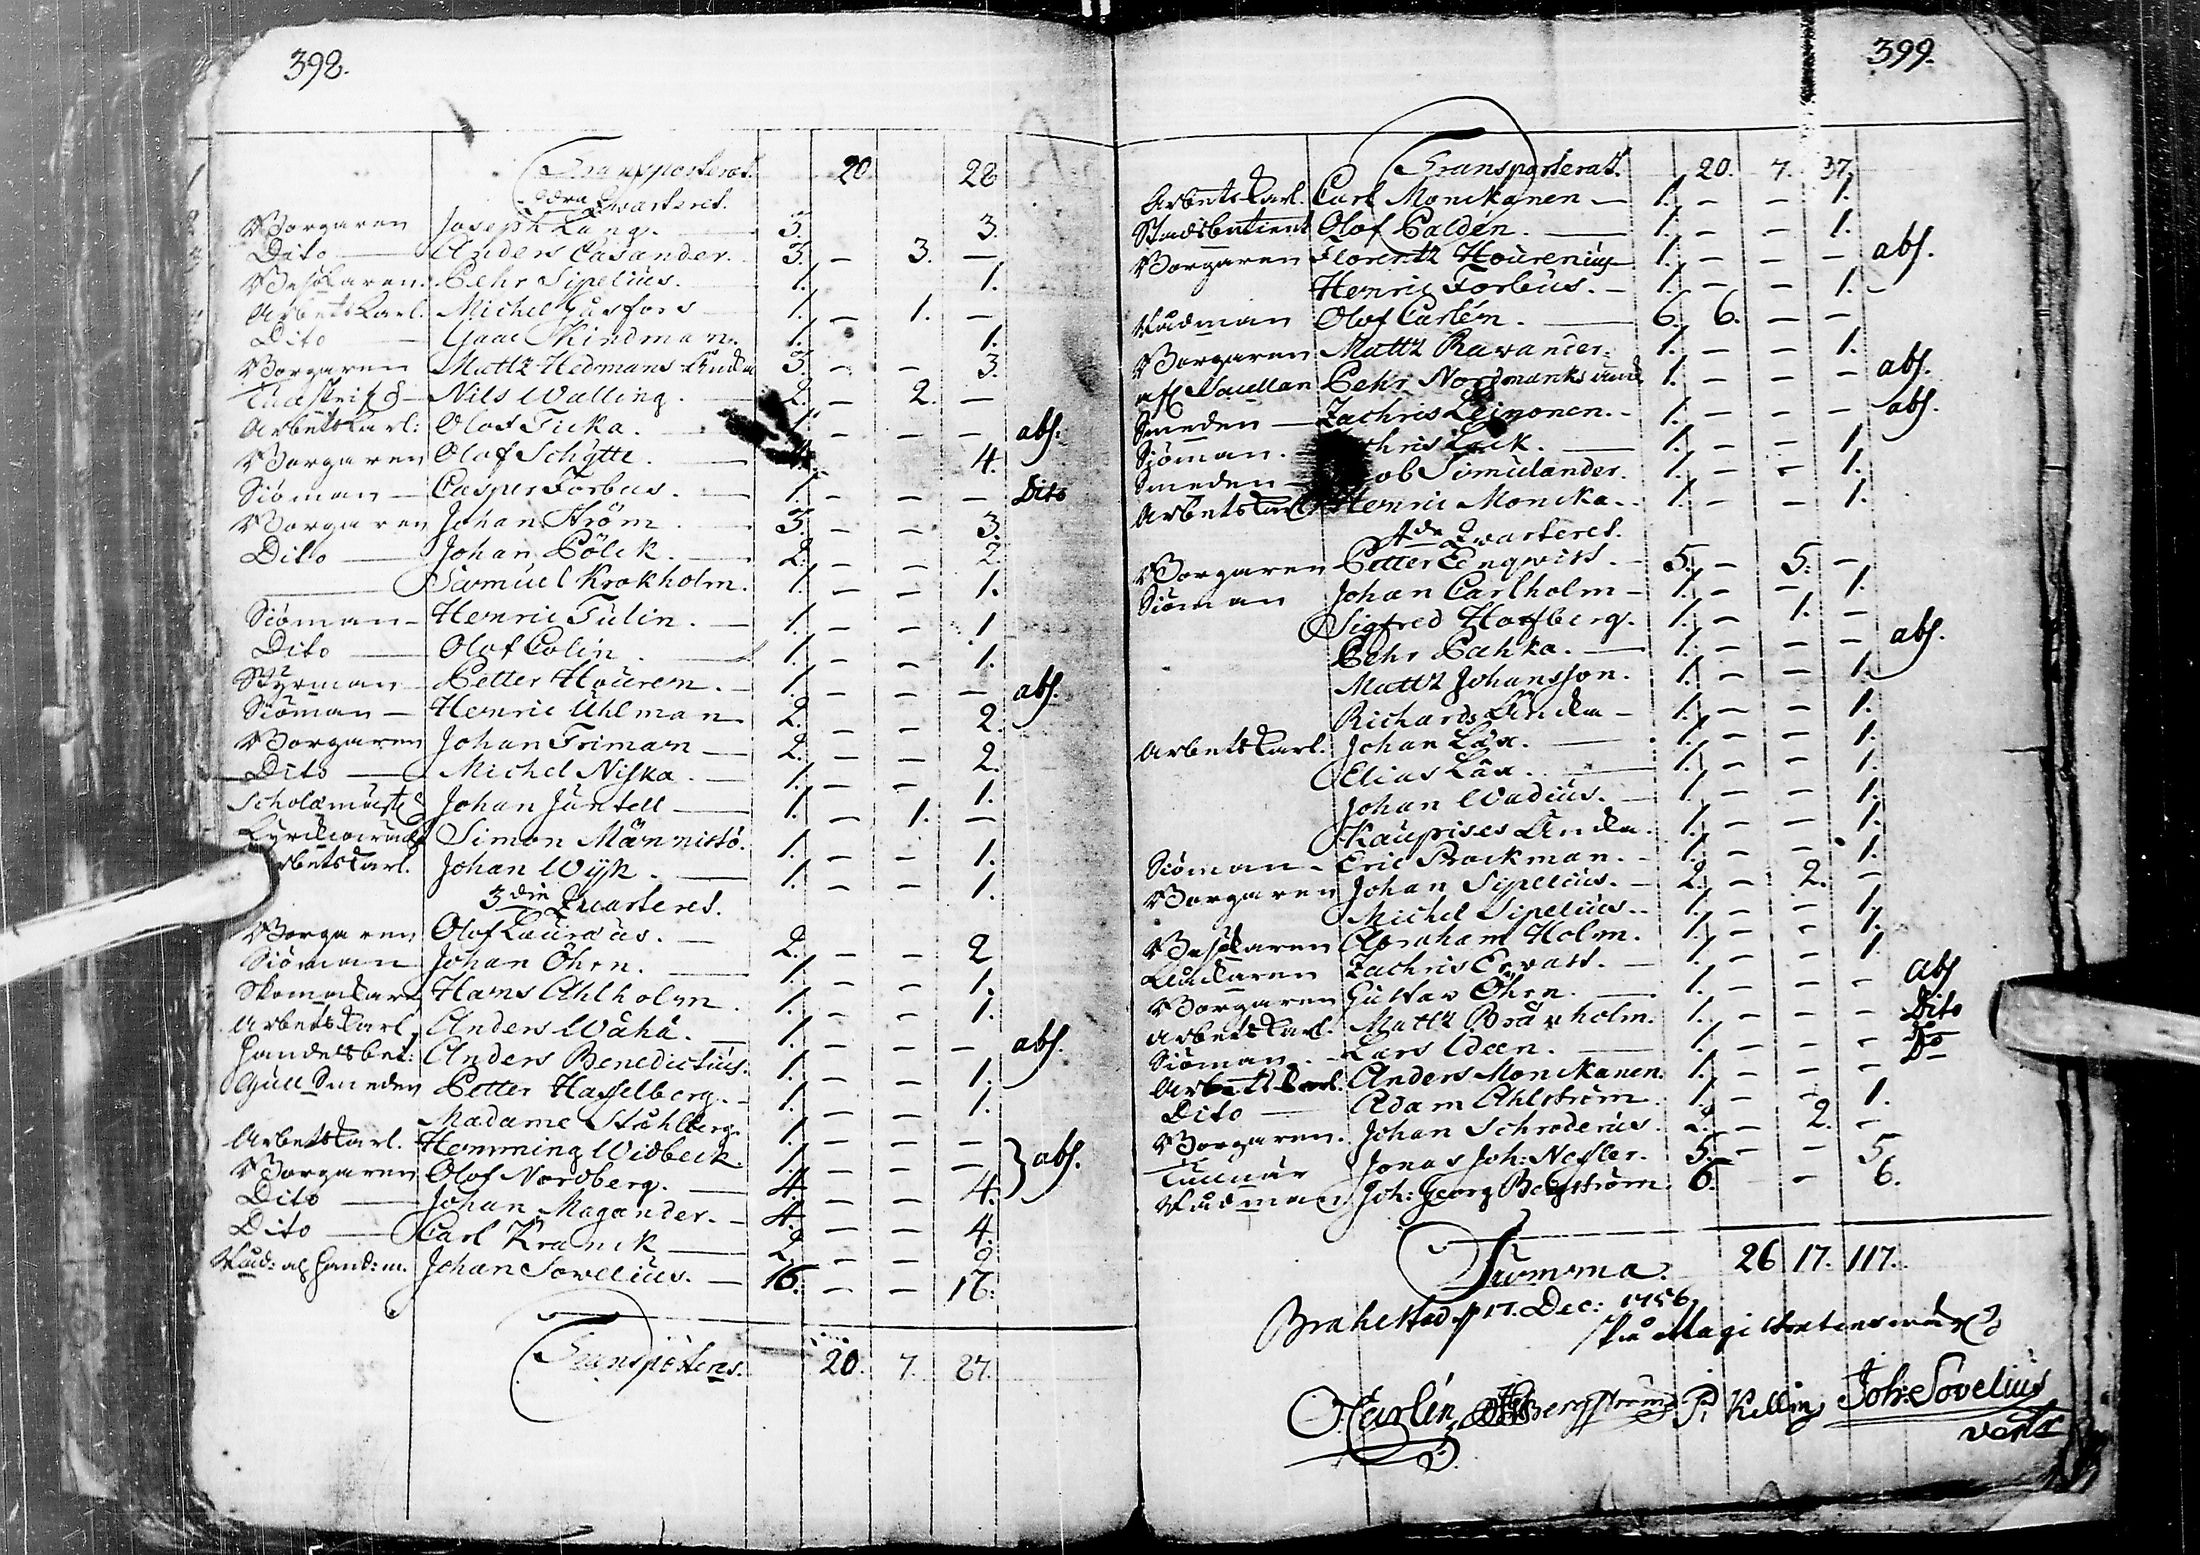 398.
Transporterat. 20. 28
2dra Qwarteret.
Borgaren Joseph Lang. 3. 3.
Dito Anders Casander. 3. — 3. —
Besökaren. Pehr Sipelius. 1. 1.
Arbetskarl. Michel Gåsfors 1. — 1. —
Dito 1. 1.
Borgaren Mattz Hedmans Änka 3. — — 3.
Nils Walling. 2. — 2. —
Arbetskarl: Olof Ticka. 1. — — — abs.
Borgaren Olof Schÿtte. 4. 4.
Siöman — Casper Forbus. 1. — — — Dito
Borgaren Johan Ström 3. — — 3.
Dito — Johan Pölck. 2. — — 2.
Samuel Krokholm. 1. — — 1.
Siöman — Henric Tulin. 1. — — 1
Dito — Olof Colin 1. — — 1.
Styrman Petter Houren. 1. — — — abs.
Siöman — Henric Uhlman 2. — — 2.
Borgaren Johan Friman 2. — — 2.
Dito — Michel Niska. 1. — — 1.
Johan Juntell 1. — 1. —
Simon Männistö. 1. — — 1.
Arbetskarl. Johan Wijk. 1. — — 1.
3die Qwarteret.
Borgaren Olof Lauræus. 2. — — 2
Siöman Johan Öhrn. 1. — — 1.
Skomakare Hans Ahlholm 1. — — 1.
Arbetskarl. Anders Wähä. 1. — — — abs.
Handelsbet: Anders Benedictius. 1. — — 1.
Gull Smeden Petter Hasselberg. 1. — — 1.
Madame Ståhlberg. 1. — — —
Arbetskarl. Hemming Widbeck. 1. — — — } abs.
Borgaren Olof Nordberg. 4. — — 4.
Dito — Johan Magander. 4. — — 4.
Dito — Carl Kranck 2. — — 2.
Råd: och Hand:m. Johan Sovelius. 16. — — 16.
Transporteras. 20. 7. 87.
399.
Transporterat. 20. 7. 37.
Arbetskarl. Carl Monikanen — 1. — — 1.
Stadsbetient Olof Paldén. 1. — — 1.
Borgaren Florentz Hourenius 1. — — — abs.
Henric Forbus. 1. — — 1.
Rådman Olof Carlén. 6. 6. — —
Borgaren Mattz Ravander. 1. — — 1.
Pehr Nordmanks 1. — — — abs.
Smeden — Zachris Leinonen. 1. — — — abs.
Sjöman. 1. — — 1.
Smeden 1. — — 1.
Arbetskarl. Henric Monika. 1. — — 1.
4de Qwarteret.
Borgaren Petter Enqwist. 5. — 5. —
Siöman Johan Carlholm 1. — — 1.
Sigfred Hofberg. 1. — 1. —
Pehr Pahka. 1. — — — abs.
Mattz Johansson. 1. — — 1.
Richards Änka 1. — — 1.
Arbetskarl. Johan Läx. 1. — — 1.
Elias Läx. 1. — — 1.
Johan Wadius. 1. — — 1.
Kauppises Änka. 1. — — 1.
Siöman — Eric Brockman. 1. — — 1.
Borgaren Johan Sipelius. 2. — 2. —
Michel Sipelius. 1. — — 1.
Besökaren Abraham Holm. 1. — — 1.
Zachris Ervast. 1. — — 1.
Borgaren Gustav Öhrn. 1. — — — Abs
Arbetskarl. Mattz Brunholm. 1. — — — Dito
Siöman. Lars Ideen. 1. — — — Do
Arbetskarl. Anders Monikanen. 1. — — —
Dito Adam Ahlström. 1. — — 1.
Borgaren. Johan Schroderus. 2. — 2. —
Jonas Joh: Nessler. 5. — — 5.
Rådman Joh: Georg Bergström. 6. — 6.
Summa. 26 17. 117.
Brahestad d 17. Dec: 1756.
på Magistratens
O Carlén, Bergström P: Kellin Joh: Sovelius
verte